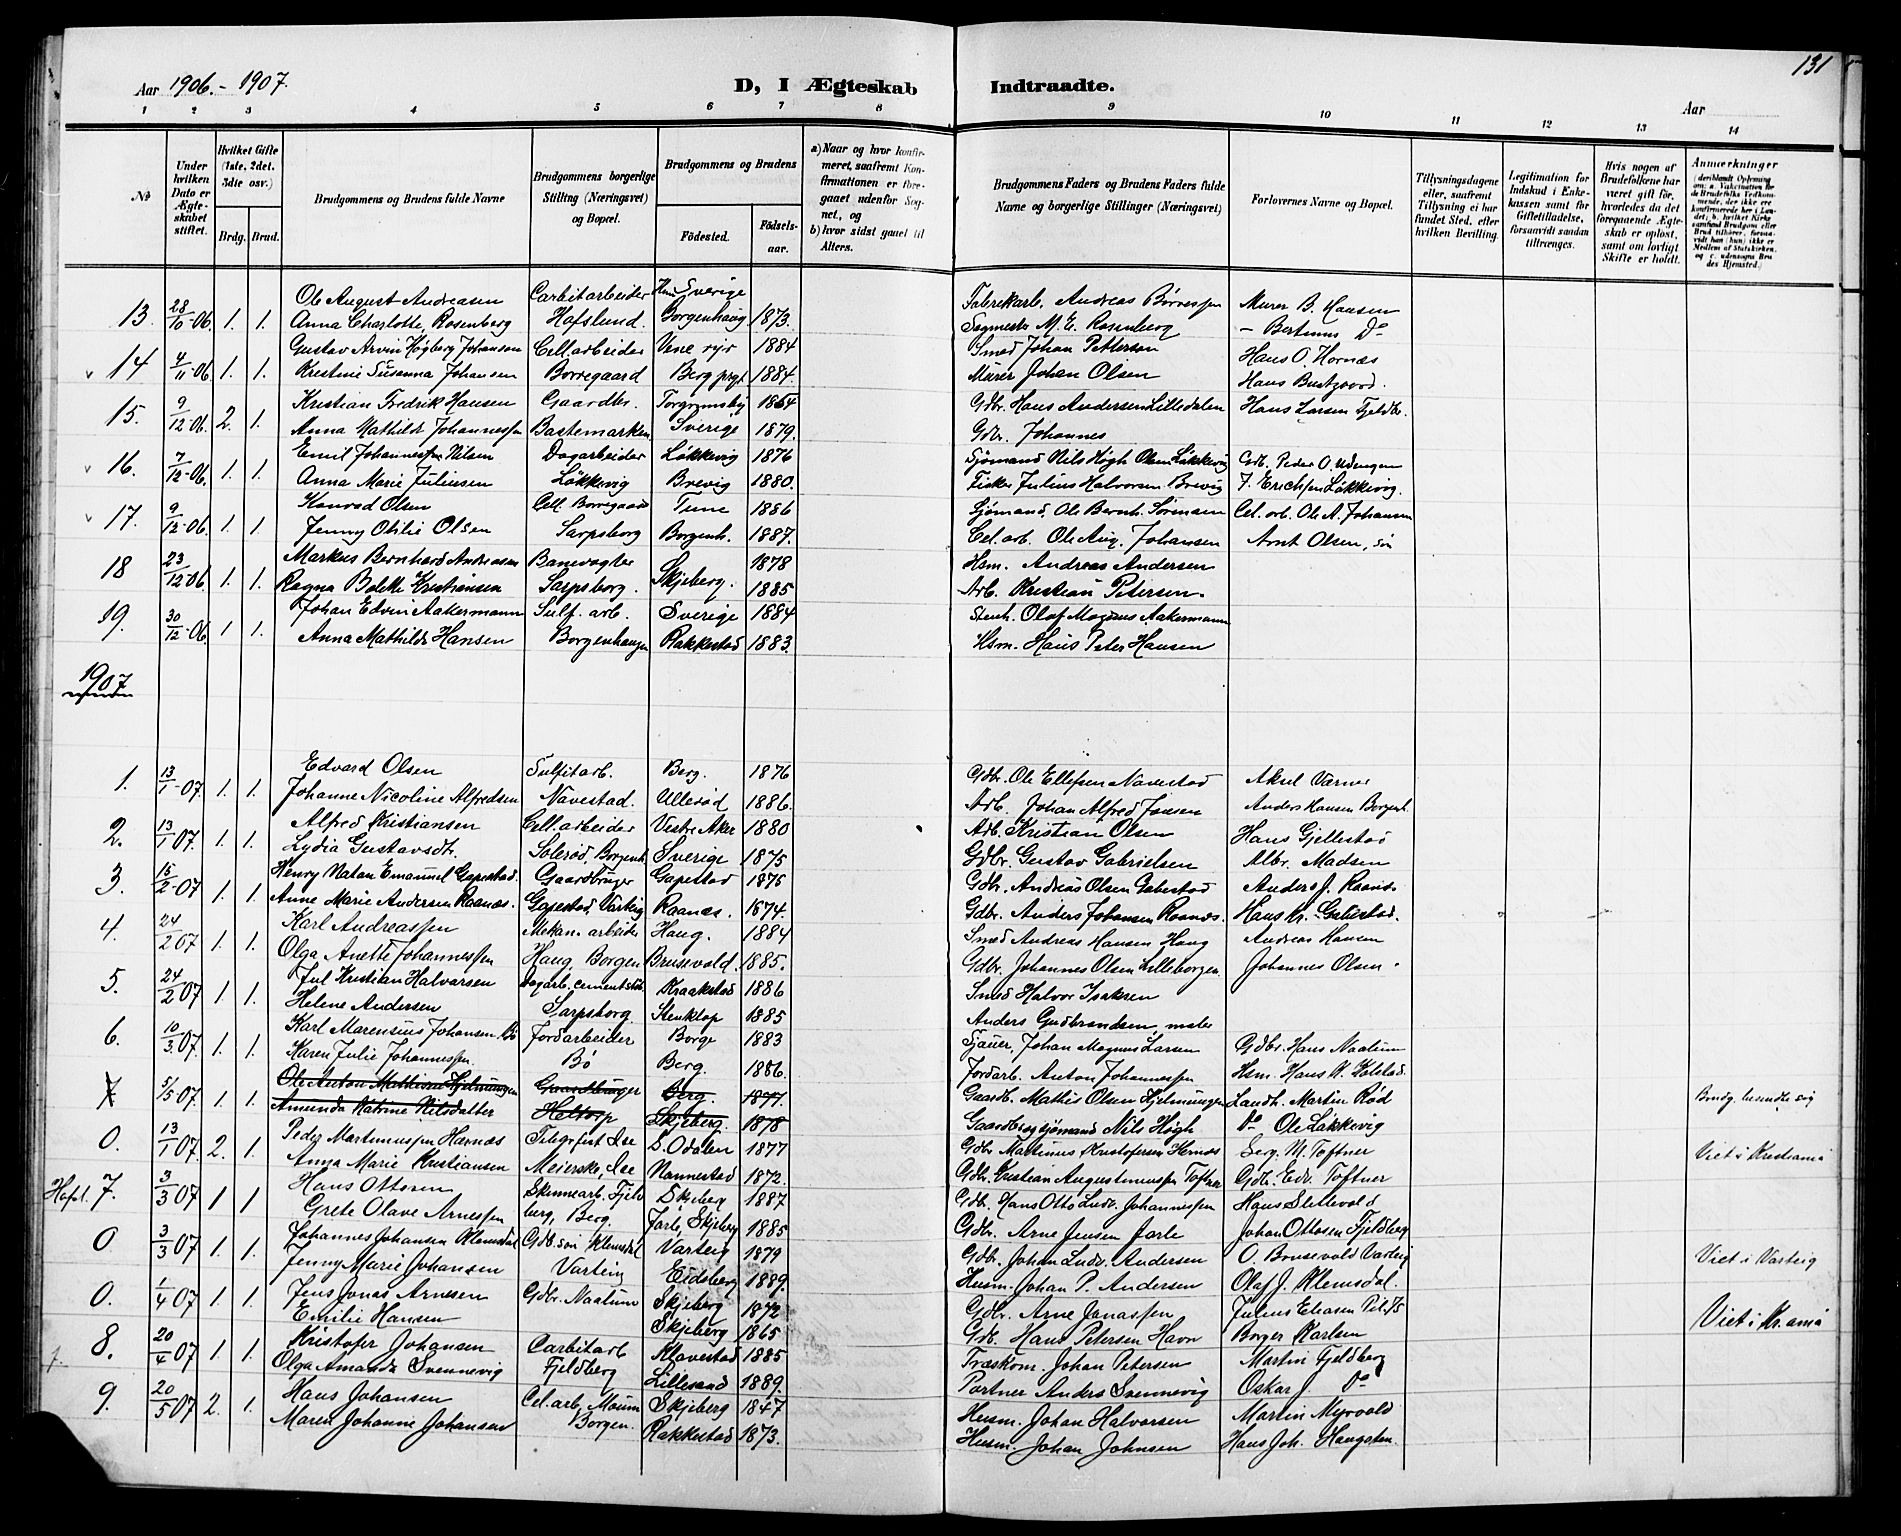 131
Aar 1906. - 1907.
D, I Ægteskab Indtraadte.
Aar
1 2 3 4 5 6 7 8 9 10 11 12 13 14
No
Under hvilken Dato er Ægteskabet stiftet.
Hvilket Gifte (1ste, 2det, 3die osv.)
Brdg. Brud.
Brudgommens og Brudens fulde Navne
Brudgommens borgerlige Stilling (Næringsvei) og Bopæl.
Brudgommens og Brudens
Fødested. Fødselsaar.
a) Naar og hvor konfirmeret, saafremt Konfirmationen er foregaaet udenfor Sognet, og
b) hvor sidst gaaet til Alters.
Brudgommens Faders og Brudens Faders fulde Navne og borgerlige Stillinger (Næringsvei)
Forlovernes Navne og Bopæl.
Tillysningsdagene eller, saafremt Tillysning ei har fundet Sted, efter hvilken Bevilling.
Legitimation for Indskud i Enkekassen samt for Giftetilladelse, forsaavidt saadan tiltrænges.
Hvis nogen af Brudefolkene har været gift før, hvorledes da det foregaaende Ægteskab er opløst, samt om lovligt Skifte er holdt.
Anmærkninger (deriblandt Oplysning om: a. Vakcination for de Brudefolks Vedkommende, der ikke ere konfirmerede her i Landet; b. hvilket Kirkesamfund Brudgom eller Brud tilhører, forsaavidt han (hun) ikke er Medlem af Statskirken, og c. udensogns Brudes Hjemsted.)
13. 28/10-06. 1. 1. Ole August Andreasen Carbitarbeider Sverige Fabrekarb. Andreas Børresen Murer B. Hansen
Anna Charlotte Rosenberg Hafslund. Borgenhaug 1873. Sagmester M. E. Rosenberg - Bertinus Do
14 4/11-06 1. 1. Gustav Arvin Høgberg Johansen Cell. arbeider 1884 Smed Johan Petterson Hans O. Hornæs
Kristine Susanna Johansen Borregaard Berg prgt 1884. Murer Johan Olsen Hans Bustgaard.
15. 9/12-06. 2. 1. Kristian Fredrik Hansen Gaardbr. Torgrimsby 1864 Gdbr. Hans Andersen Lilledalen Hans Larsen Fjeldbr.
Anna Mathilde Johannessen Bastemarken Sverige 1879. Gdbr. Johannes
16. 7/12-06. 1. 1. Emil Johannessen Nilsen Dagarbeider Løkkevig 1876 Sjømand Nils Høgh Olsen Løkkevig Gdb. Peder O. Udengen
Anna Marie Juliusen Løkkevig Brevig 1880. Fisker Julius Halvorsen Brevig F. Erichsen Løkkevig.
17. 9/12-06. 1. 1. Konrad Olsen Cell. Borregaard Tune 1886 Sjømand. Ole Bernh. Sørensen Cel. arb. Ole A. Johansen
Jenny Otilie Olsen Sarpsborg Borgenh. 1887. Cel. arb. Ole Aug. Johansen Arnt Olsen, søn
18 23/12-06 1. 1. Markus Bernhard Andreasen Banevogter Skjeberg. 1878 Hsm. Andreas Andersen
Ragna Bolette Kristiansen Sarpsborg. 1885 Arb. Kristian Petersen.
19. 30/12-06. 1 1. Johan Edvin Aakermann Sulf. arb. Sverige 1884 Stenh. Olaf Magnus Aakermann
Anna Mathilde Hansen Borgenhaugen Rakkestad 1883. Hsm. Hans Peter Hansen
1907
1. 13/1-07. 1. 1. Edvard Olsen Sulfitarb. Berg. 1876 Gdbr. Ole Ellefsen Navestad Aksel Varner
Johanne Nicoline Alfredsen Navestad. Ullerød 1886. Arb. Johan Alfred Jonsen Anders Hansen Borgenh.
2. 13/1 07. 1. 1. Alfred Kristiansen Cell. arbeider Vestre Aker 1880 Arb. Kristian Olsen Hans Gjellestad
Lydia Gustavsdtr. Solerød, Borgenh. Sverige 1875 Gdbr. Gustav Gabrielsen Albr. Madsen
3. 15/2-07 1. 1. Henry Natan Emanuel Gapestad. Gaardbruger Gapestad 1875 Gdbr. Andreas Olsen Gabestad Anders J. Raanæs
Anne Marie Andersen Raanæs. Gapestad, Varteig Raanæs. 1874. Gdbr. Anders Johansen Raanæs. Hans Kr. Gabestad.
4. 24/2 07 1. 1. Karl Andreassen Mekan. arbeider Haug. 1884 Smed Andreas Hansen Haug Andreas Hansen
Olga Anette Johannessen Haug Borgen Brusevold. 1885. Gdbr. Johannes Olsen Lilleborgen. Johannes Olsen.
5. 24/2 07 1. 1. Jul Kristian Halvorsen Dagarb. cementstøb. Kraakstad 1886 Smed Halvor Isaksen
Helene Andersen Sarpsborg Stenktop 1885 Anders Gudbrandsen, maler
6. 10/3 07. 1. 1. Karl Marensius Johansen Bø Jordarbeider Borge 1883 Tjauer, Johan Magnus Larsen Gdbr. Hans Naalum
Karen Julie Johannessen Bø Berg. 1886. Jordarb. Anton Johannessen Hsm. Hans K. Kolstad.
7 5/5 07 1. 1. Ole Anton Mathisen Hjelmungen Gaardbruger Berg. 1877. Gaardb. Mathis Olsen Hjelmungen Landh. Martin Rød Brudg. besendte sig
Amunda Katrine Nilsdatter Heltorp Skjeberg. 1878 Gaardbrog sjømand Nils Høgh Do Ole Løkkevig
0. 13/1 07. 2. 1. Peder Martinussen Hernæs Telegrfist Ise S. Odalen 1877 Gdbr. Martinus Kristofersen Hernæs Serg. M. Toftner Viet i Kristiania
Anna Marie Kristiansen Meierske, Ise Nannestad 1872. Gdbr. Kristian Augustinussen Toftner Gdb. Edv. Toftner
Hafsl. 7. 3/3 07 1 1 Hans Ottosen Skinnearb. Fjeldberg, Berg. Skjeberg 1887 Gdbr. Hans Otto Ludv. Johannessen Hans Stillevold
Grete Olave Arnessen Jarle, Skjeberg 1885 Gdbr. Arne Jensen Jarle Johan Ottosen Fjeldberg
0 3/3 07 1. 1. Johannes Johansen Klemsdal Gdbr. søn Klemsdal Varteig 1879 Gdbr. Johan Ludv. Andersen O. Brusevold Varteig Viet i Varteig
Jenny Marie Johansen Varteig Eidsberg 1889. Husm. Johan P. Andersen Olaf J. Klemsdal.
0. 1/4 07 1. 1. Jens Jonas Arnesen Gdbr. Naalum Skjeberg 1872 Gdbr. Arne Jonassen Julius Eliasen Viet i Kr.ania
Emilie Hansen Skjeberg 1865 Gdb. Hans Petersen Havn Borger Karlsen
8. 20/4 07 1. 1. Kristofer Johansen Carbitarb Klavestad 1885 Træskom. Johan Petersen Martin Fjeldberg
Olga Amanda Svennevig Fjeldberg Lillesand 1889. Portner Anders Svennevig Oskar J. Do
9. 20/5 07 2. 1. Hans Johansen Cel. arb. Moum Skjeberg 1847 Husm. Johan Halvorsen Martin Myrvold
Maren Johanne Johansen Borgen. Rakkestad 1873. Husm. Johan Johnsen Hans Joh. Haugsten.